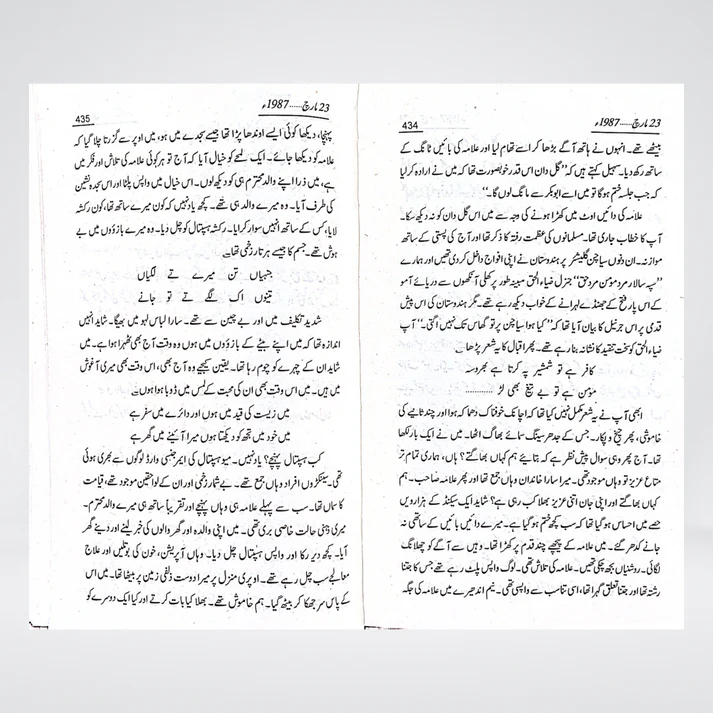 434
23 مارچ......1987ء
بیٹھے تھے۔ انہوں نے ہاتھ آگے بڑھا کر اسے تھام لیا اور علامہ کی بائیں ٹانگ کے
ساتھ رکھ دیا۔ سہیل کہتے ہیں کہ ”گل دان اس قدر خوبصورت تھا کہ میں نے ارادہ کر لیا
کہ جب جلسہ ختم ہوگا تو میں اسے ابوبکر سے مانگ لوں گا۔“
علامہ کی دائیں اوٹ میں کھڑا ہونے کی وجہ سے میں اس گل دان کو نہ دیکھ سکا۔
آپ کا خطاب جاری تھا۔ مسلمانوں کی عظمت رفتہ کا ذکر تھا اور آج کی پستی کے ساتھ
موازنہ۔ ان دنوں سیاچن گلیشئر پر ہندوستان نے اپنی افواج داخل کر دی تھیں اور ہمارے
”سپہ سالار مرد مؤمن مرد حق“ جنرل ضیاء الحق مبینہ طور پر کھلی آنکھوں سے دریائے آمو
کے اس پار فتح کے جھنڈے لہرانے کے خواب دیکھ رہے تھے۔ مگر ہندوستان کی اس پیش
قدمی پر اس جرنیل کا بیان آیا تھا کہ ”کیا ہوا سیاچن پر تو گھاس تک نہیں اگتی۔“ آپ
ضیاء الحق کو سخت تنقید کا نشانہ بنا رہے تھے۔ پھر اقبال کا یہ شعر پڑھا
کافر ہے تو شمشیر پہ کرتا ہے بھروسہ
مؤمن ہے تو بے تیغ بھی لڑ ............
ابھی آپ نے یہ شعر مکمل نہیں کیا تھا کہ اچانک خوفناک دھماکہ ہوا اور چند ثانیے کی
خاموشی، پھر چیخ و پکار۔ جس کے جدھر سینگ سمائے بھاگ اٹھا۔ میں نے ایک بار لکھا
تھا۔ آج پھر وہی سوال پیش نظر ہے کہ بتائیے ہم کہاں بھاگتے؟ ہاں، ہماری تمام تر
متاع عزیز تو وہاں موجود تھی۔ میرا سارا خاندان وہاں جمع تھا اور پھر علامہ صاحب۔ ہم
کہاں بھاگتے اور اپنی جان اتنی عزیز بھلا کب رہی ہے؟ شاید ایک سیکنڈ کے ہزارویں
حصے میں احساس ہو گیا تھا کہ سب کچھ ختم ہو گیا ہے۔ میرے دائیں بائیں کے ساتھی نہ
جانے کدھر گئے۔ میں علامہ کے پیچھے چند قدم پر کھڑا تھا۔ وہیں سے آگے کو چھلانگ
لگائی۔ روشنیاں بجھ چکی تھیں۔ علامہ کی تلاش تھی۔ لوگ واپس پلٹ رہے تھے جس کا جتنا
رشتہ تھا اور جتنا تعلق گہرا تھا، اسی تناسب سے واپسی تھی۔ نیم اندھیرے میں علامہ کی جگہ
435
23 مارچ......1987ء
پہنچا، دیکھا کوئی ایسے اوندھا پڑا تھا جیسے سجدے میں ہو، میں اوپر سے گزرتا چلا گیا کہ
علامہ کو دیکھا جائے۔ ایک لمحے کو خیال آیا کہ آج تو ہر کوئی علامہ کی تلاش اور فکر میں
ہے، میں ذرا اپنے والد محترم ہی کو دیکھ لوں۔ اس خیال میں واپس پلٹا اور اس سجدہ نشین
کی طرف آیا۔ وہ میرے والد ہی تھے۔ کچھ یاد نہیں کہ کون میرے ساتھ تھا، کون رکشہ
لایا، کس کے ساتھ انہیں سوار کرایا۔ رکشہ ہسپتال کو چل دیا۔ وہ میرے بازوؤں میں بے
ہوش تھے۔ جسم کا جیسے ہر تار زخمی تھا۔
جنہاں تن میرے تے لگیاں
تینوں اک لگے تے تو جانے
شدید تکلیف میں اور بے چین سے تھے۔ سارا لباس لہو میں بھیگا۔ شاید انہیں
اندازہ تھا کہ میں اپنے بیٹے کے بازوؤں میں ہوں وہ وقت آج بھی ٹھہرا ہوا ہے۔ میں
شاید ان کے چہرے کو چوم رہا تھا۔ یقین کیجیے وہ آج بھی، اس وقت بھی میری آغوش
میں ہیں۔ میں اس وقت بھی ان کی محبت کے لمس میں ڈوبا ہوا ہوں
میں زیست کی قید میں ہوں اور دائرے میں سفر ہے
میں خود میں تجھ کو دیکھتا ہوں میرا آئینے میں گھر ہے
کب ہسپتال پہنچے؟ یاد نہیں۔ میو ہسپتال کی ایمرجنسی وارڈ لوگوں سے بھری ہوئی
تھی۔ سینکڑوں افراد وہاں جمع تھے۔ بے شمار زخمی اور ان کے لواحقین موجود تھے، قیامت
کا سماں تھا۔ سب سے پہلے علامہ ہی وہاں پہنچے اور تقریباً ساتھ ہی میرے والد محترم۔
میری ذہنی حالت خاصی بری تھی۔ میں اپنی والدہ اور گھر والوں کی خبر لینے اور دینے گھر
آیا۔ کچھ دیر رکا اور واپس ہسپتال چل دیا۔ وہاں آپریشن، خون کی بوتلیں اور علاج
معالجے سب چل رہے تھے۔ اوپری منزل پر میرا دوست ذلفی زمین پر بیٹھا تھا۔ میں اس
کے پاس سر جھکا کر بیٹھ گیا۔ ہم خاموش تھے۔ بھلا کیا بات کرتے اور کیا ایک دوسرے کو